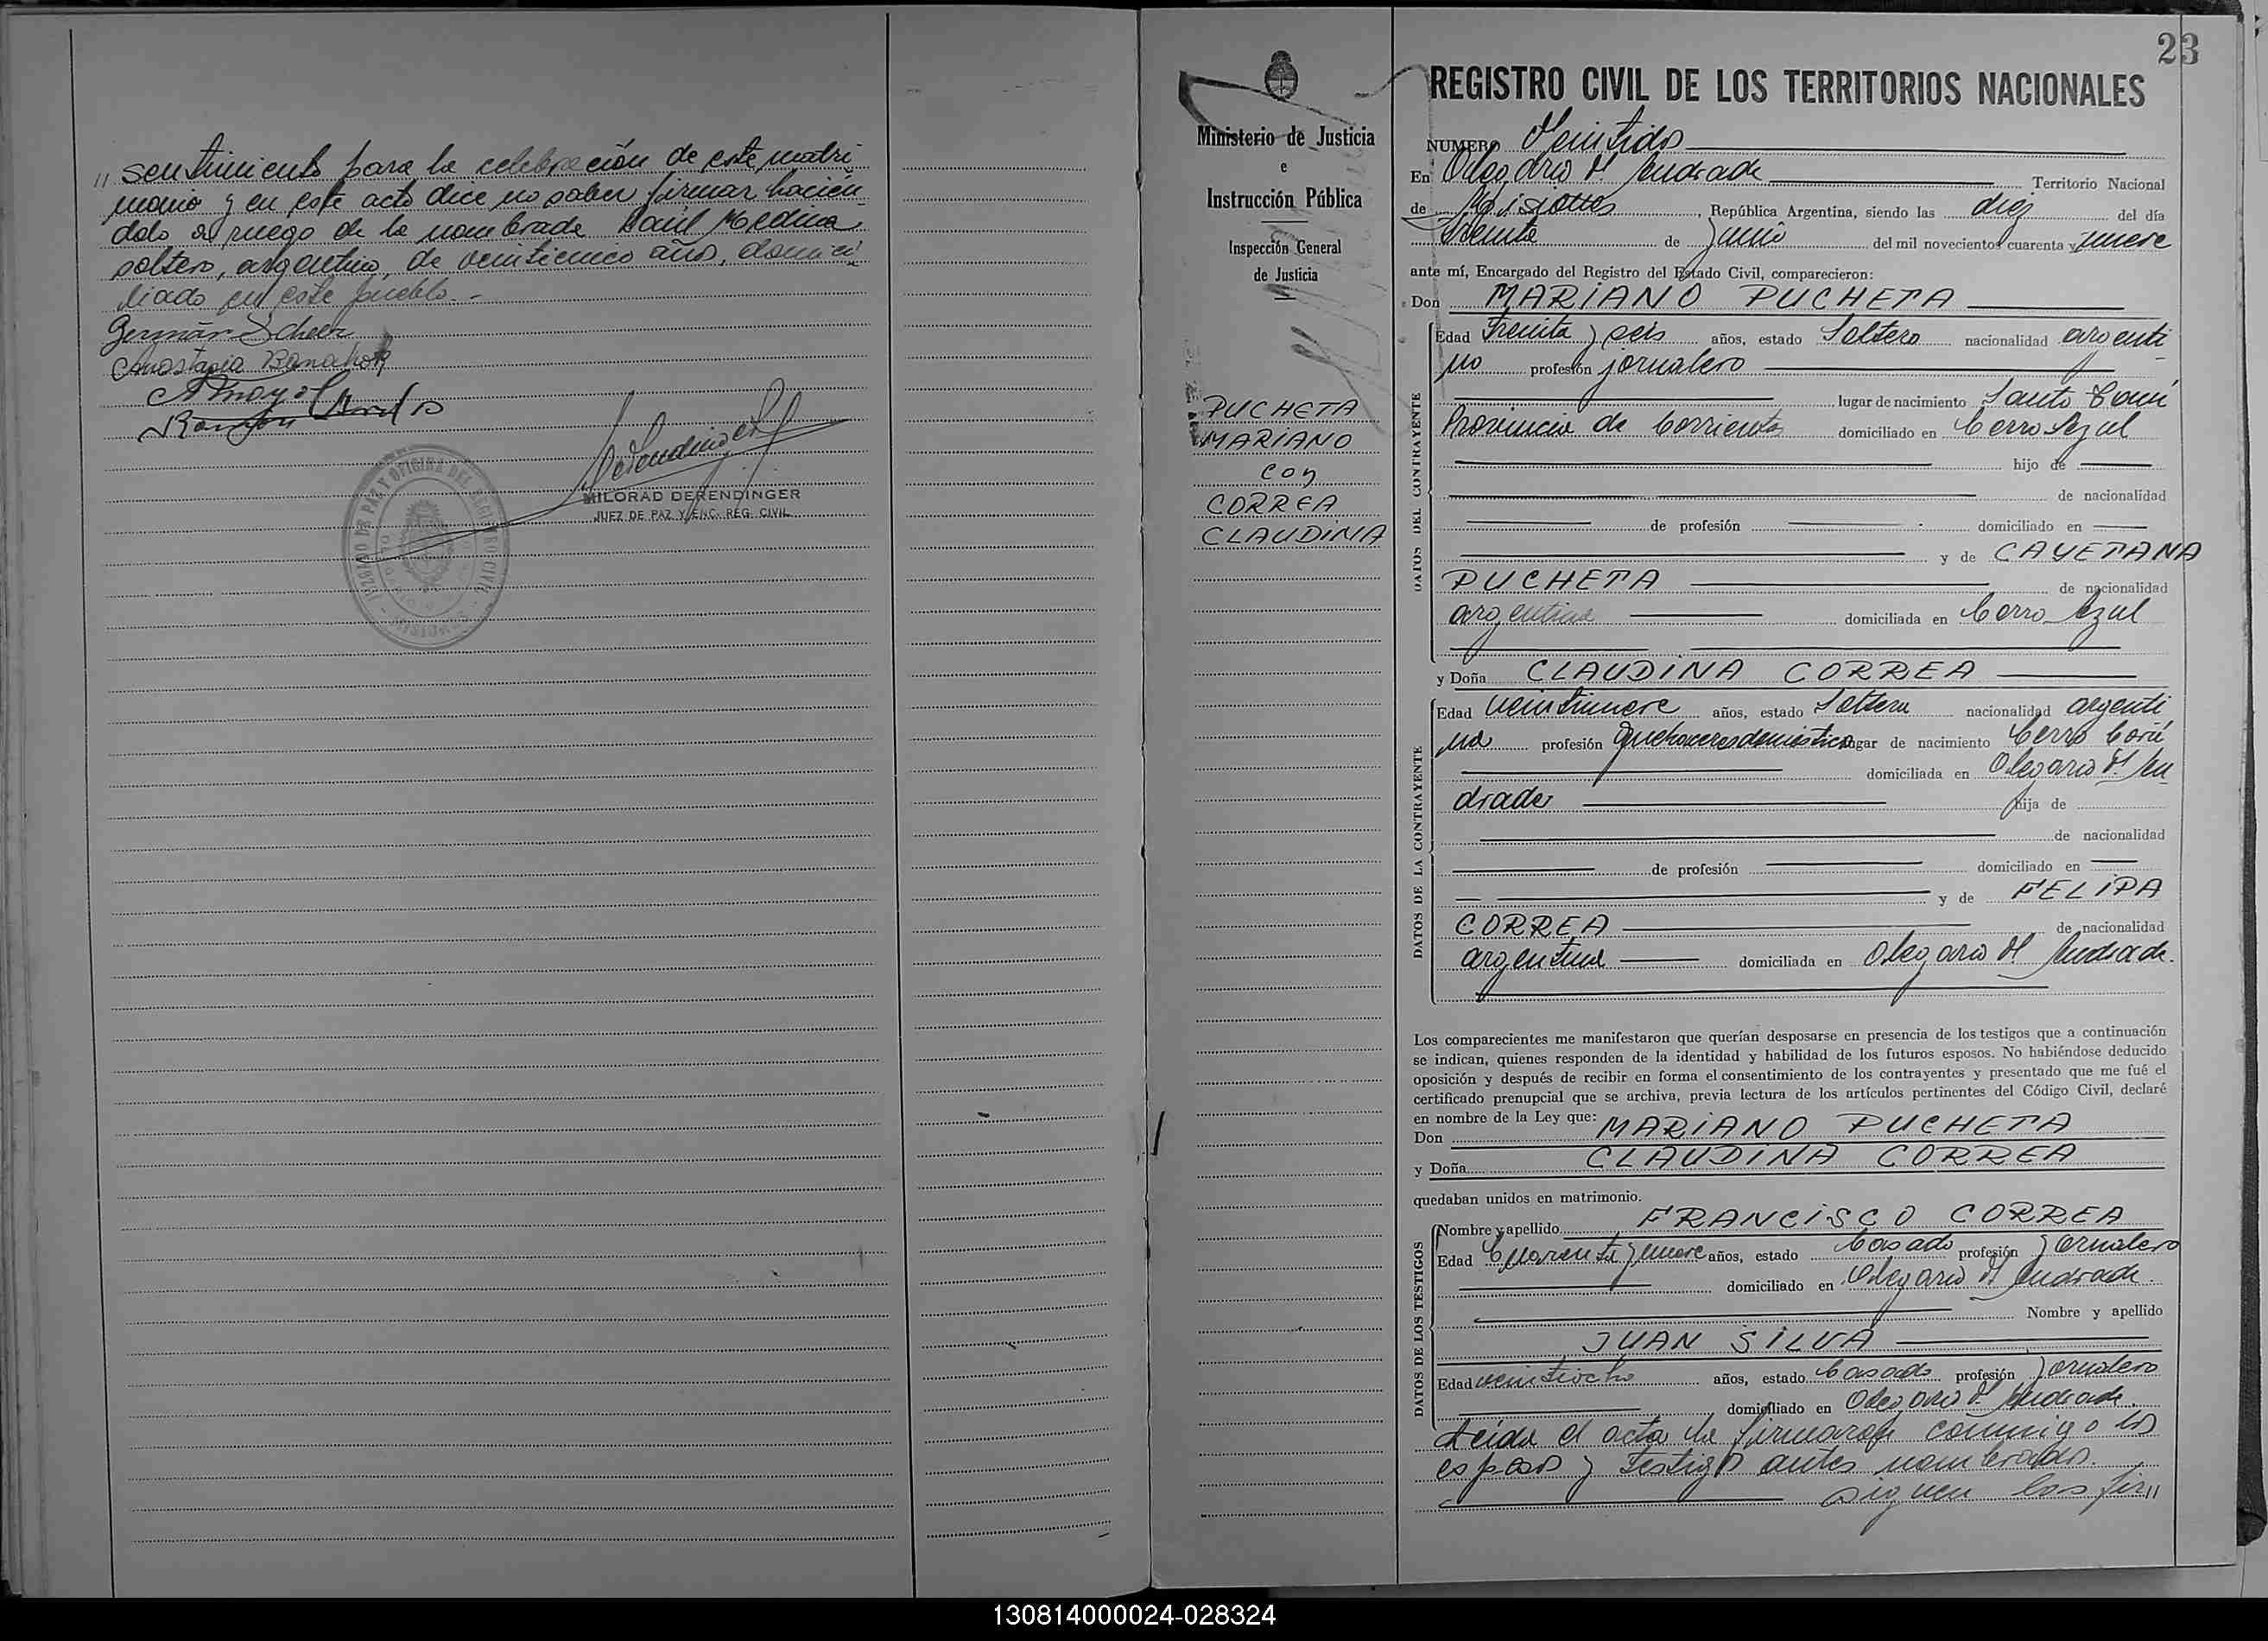 " sentimiento para la celebración de este matri
monio y en este acto dice no saber firmar hacien
dolo a ruego de la nombrada Raúl Medina
soltero, argentino, de veinticinco años, domici
liado en este pueblo.-
Germán Scheer
Anastasia
Ramón
MILORAD DERENDINGER
JUEZ DE PAZ Y ENC. REG. CIVIL
JUZGADO DE PAZ Y OFICINA DEL REGISTRO CIVIL
MISIONES
23
Ministerio de Justicia
e
Instrucción Pública
Inspección General
de Justicia
PUCHETA
MARIANO
con
CORREA
CLAUDINA
REGISTRO CIVIL DE LOS TERRITORIOS NACIONALES
NUMERO Veintidos
En Olegario V. Andrade Territorio Nacional
de Misiones, República Argentina, siendo las diez del día
treinta de Junio del mil novecientos cuarenta y nueve
ante mí, Encargado del Registro del Estado Civil, comparecieron:
Don MARIANO PUCHETA
DATOS DEL CONTRAYENTE
Edad treinta y seis años, estado Soltero nacionalidad argenti
no profesión jornalero
lugar de nacimiento Santo Tomé
Provincia de Corrientes domiciliado en Cerro Azul
hijo de
de nacionalidad
de profesión domiciliado en
y de CAYETANA
PUCHETA de nacionalidad
argentina domiciliada en Cerro Azul
y Doña CLAUDINA CORREA
DATOS DE LA CONTRAYENTE
Edad veintinueve años, estado Soltera nacionalidad argenti
na profesión quehaceres domésticos lugar de nacimiento Cerro Corá
domiciliada en Olegario V. An
drade hija de
de nacionalidad
de profesión domiciliado en
y de FELIPA
CORREA de nacionalidad
argentina domiciliada en Olegario V. Andrade.
Los comparecientes me manifestaron que querían desposarse en presencia de los testigos que a continuación
se indican, quienes responden de la identidad y habilidad de los futuros esposos. No habiéndose deducido
oposición y después de recibir en forma el consentimiento de los contrayentes y presentado que me fué el
certificado prenupcial que se archiva, previa lectura de los artículos pertinentes del Código Civil, declaré
en nombre de la Ley que:
Don MARIANO PUCHETA
y Doña CLAUDINA CORREA
quedaban unidos en matrimonio.
DATOS DE LOS TESTIGOS
Nombre y apellido FRANCISCO CORREA
Edad Cuarenta y nueve años, estado Casado profesión Jornalero
domiciliado en Olegario V. Andrade.
Nombre y apellido
JUAN SILVA
Edad veintiocho años, estado Casado profesión Jornalero
domiciliado en Olegario V. Andrade.
Leída el acta la firmaron conmigo los
esposos y testigos antes nombrados.
siguen las fir"
130814000024-028324